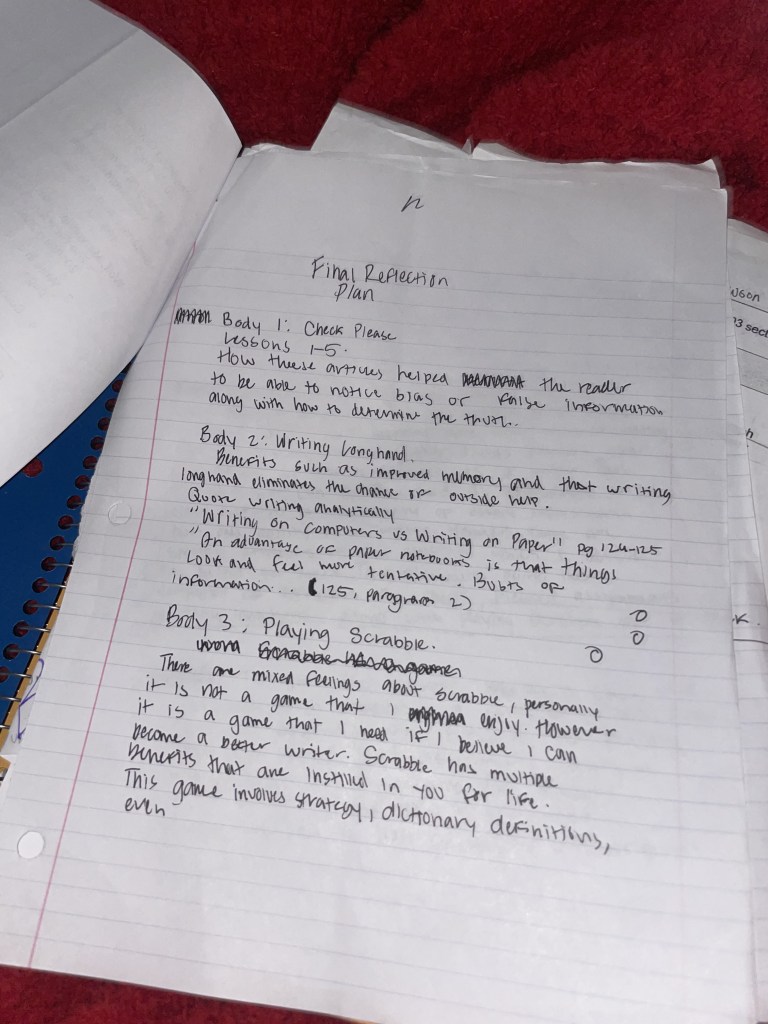 n
Final Reflection
Plan
Body 1: Check Please
Lessons 1-5.
How these articles helped the reader
to be able to notice bias or false information
along with how to determine the truth..
Body 2: Writing Longhand.
Benefits such as improved memory and that writing
longhand eliminates the chance of outside help.
Quote writing analytically
"Writing on Computers vs Writing on Paper" pg 124-125
"An advantage of paper notebooks is that things
Look and feel more tentative. Bubts of
information.. (125, paragraph 2)
Body 3: Playing Scrabble.
There are mixed feelings about scrabble, personally
it is not a game that I enjoy. However
it is a game that I need if I believe I can
become a better writer. Scrabble has multiple
benefits that are instilled in you for life.
This game involves strategy, dictionary definitions,
even
wson
3 sect
K.